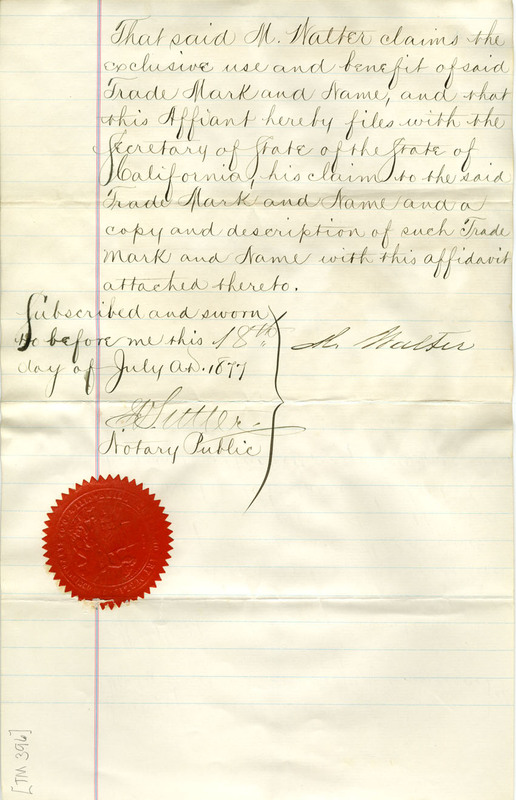 That said M. Walter claims the
exclusive use and benefit of said
Trade Mark and Name, and that
this Affiant hereby files with the
Secretary of State of the State of
California, his claim to the said
Trade Mark and Name and a
copy and description of such Trade
Mark and Name with this affidavit
attached thereto.
Subscribed and sworn
to before me this 18th
day of July A.D. 1877
M. Walter
Notary Public
[TM 396]